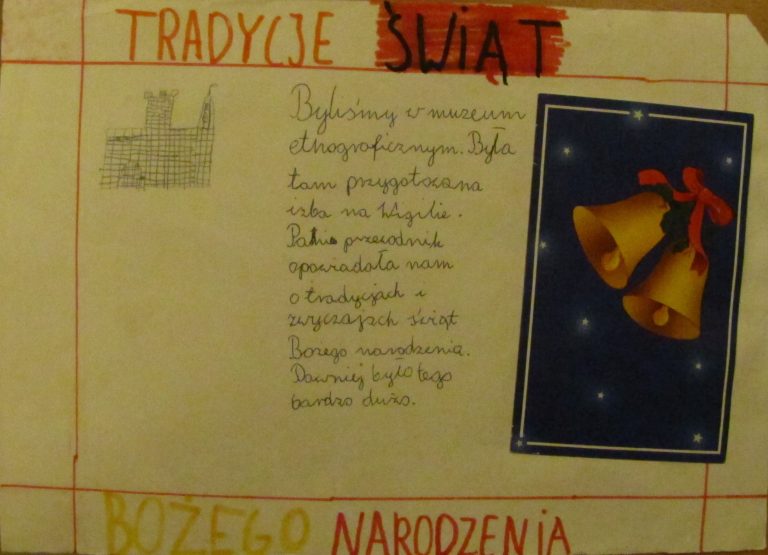 TRADYCJE ŚWIĄT
Byliśmy w muzeum
ethograficznym. Była
tam przygotowana
izba na Wigilie.
Pani przewodnik
opowiadała nam
o tradycjach i
zwyczajach świąt
Bożego narodzenia.
Dawniej było tego
bardzo dużo.
BOŻEGO NARODZENIA